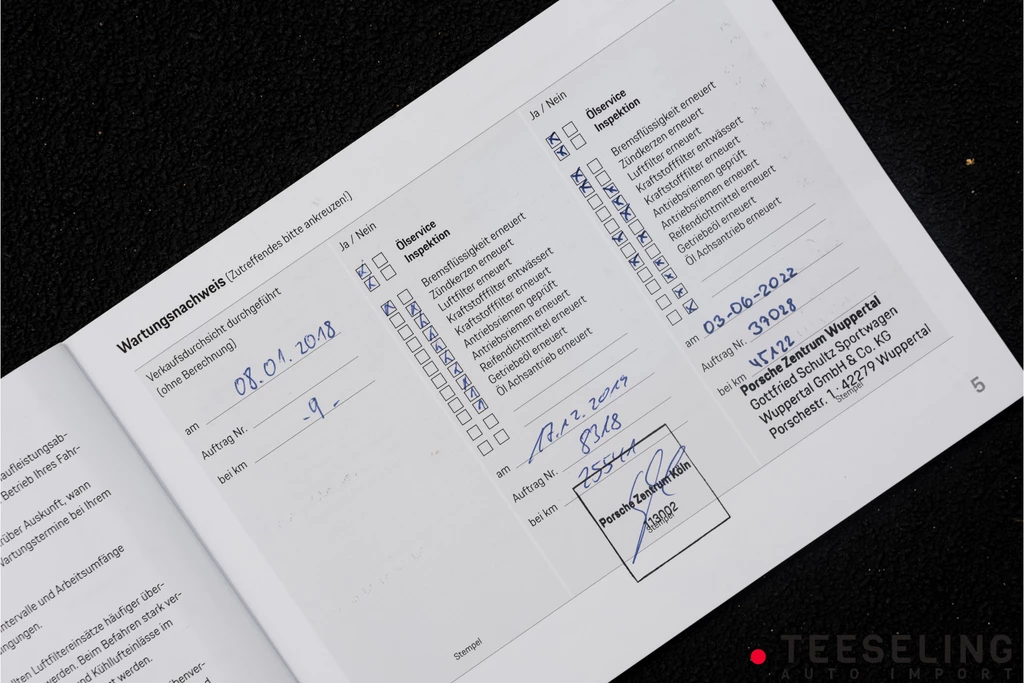 aufleistungsab-
Betrieb Ihres Fahr-
rüber Auskunft, wann
Wartungstermine bei Ihrem
ntervalle und Arbeitsumfänge
ngungen.
lten Luftfiltereinsätze häufiger über-
werden. Beim Befahren stark ver-
und Kühllufteinlässe im
t werden.
Wartungsnachweis (Zutreffendes bitte ankreuzen!)
Verkaufsdurchsicht durchgeführt
(ohne Berechnung)
am 08.01.2018
Auftrag Nr. -9-
bei km
Stempel
Ja / Nein
Ölservice
Inspektion
Bremsflüssigkeit erneuert
Zündkerzen erneuert
Luftfilter erneuert
Kraftstofffilter entwässert
Kraftstofffilter erneuert
Antriebsriemen geprüft
Antriebsriemen erneuert
Reifendichtmittel erneuert
Getriebeöl erneuert
Öl Achsantrieb erneuert
am 17.12.2019
Auftrag Nr. 8318
bei km 25541
Porsche Zentrum Köln
113002
Stempel
Ja / Nein
Ölservice
Inspektion
Bremsflüssigkeit erneuert
Zündkerzen erneuert
Luftfilter erneuert
Kraftstofffilter entwässert
Kraftstofffilter erneuert
Antriebsriemen geprüft
Antriebsriemen erneuert
Reifendichtmittel erneuert
Getriebeöl erneuert
Öl Achsantrieb erneuert
am 03-06-2022
Auftrag Nr. 39028
bei km 45122
Porsche Zentrum Wuppertal
Gottfried Schultz Sportwagen
Wuppertal GmbH & Co. KG
Porschestr. 1 · 42279 Wuppertal
Stempel
5
TEESELING
AUTO IMPORT